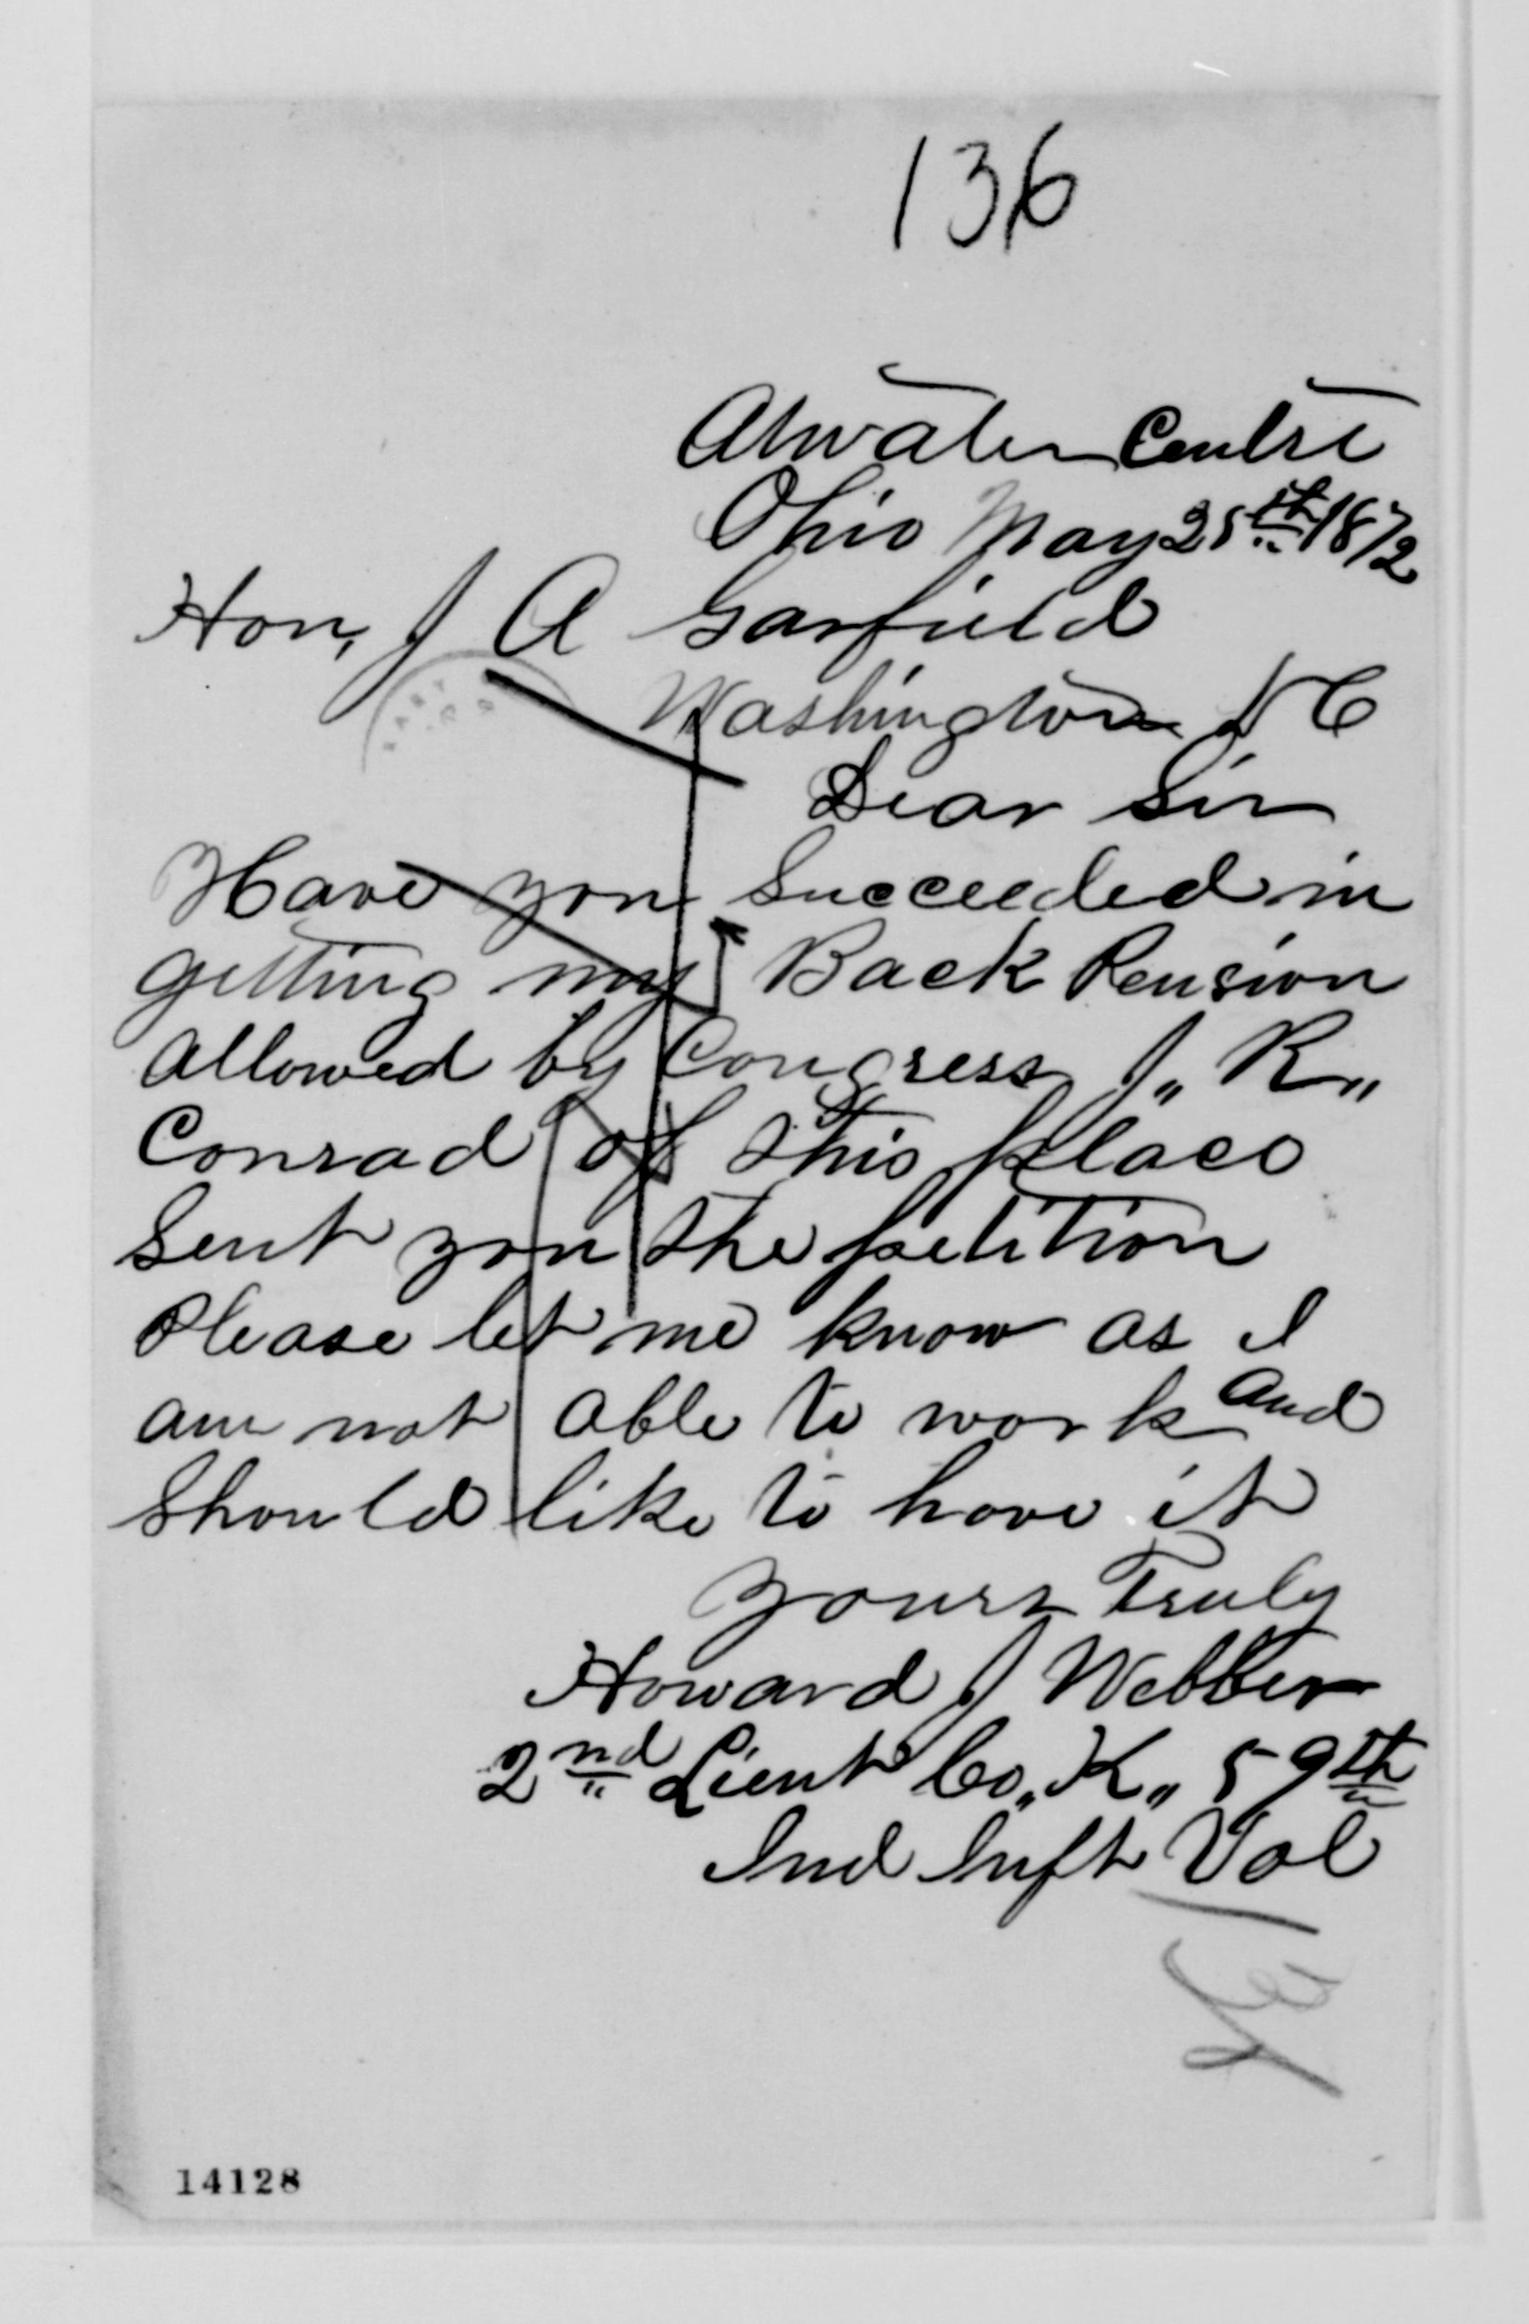 136
Atwater Centre
Ohio May 25th 1872
Hon, J A Garfield
Washington D C
Dear Sir
Have you Succeeded in
getting my Back Pension
Allowed by Congress J,, R,,
Conrad of this place
Sent you the petition
Please let me know as I
am not able to work and
Should like to have it
Yours Truly
Howard J Webber
2nd Lieut Co,, K,, 59th
Ind Inft Vol
14128